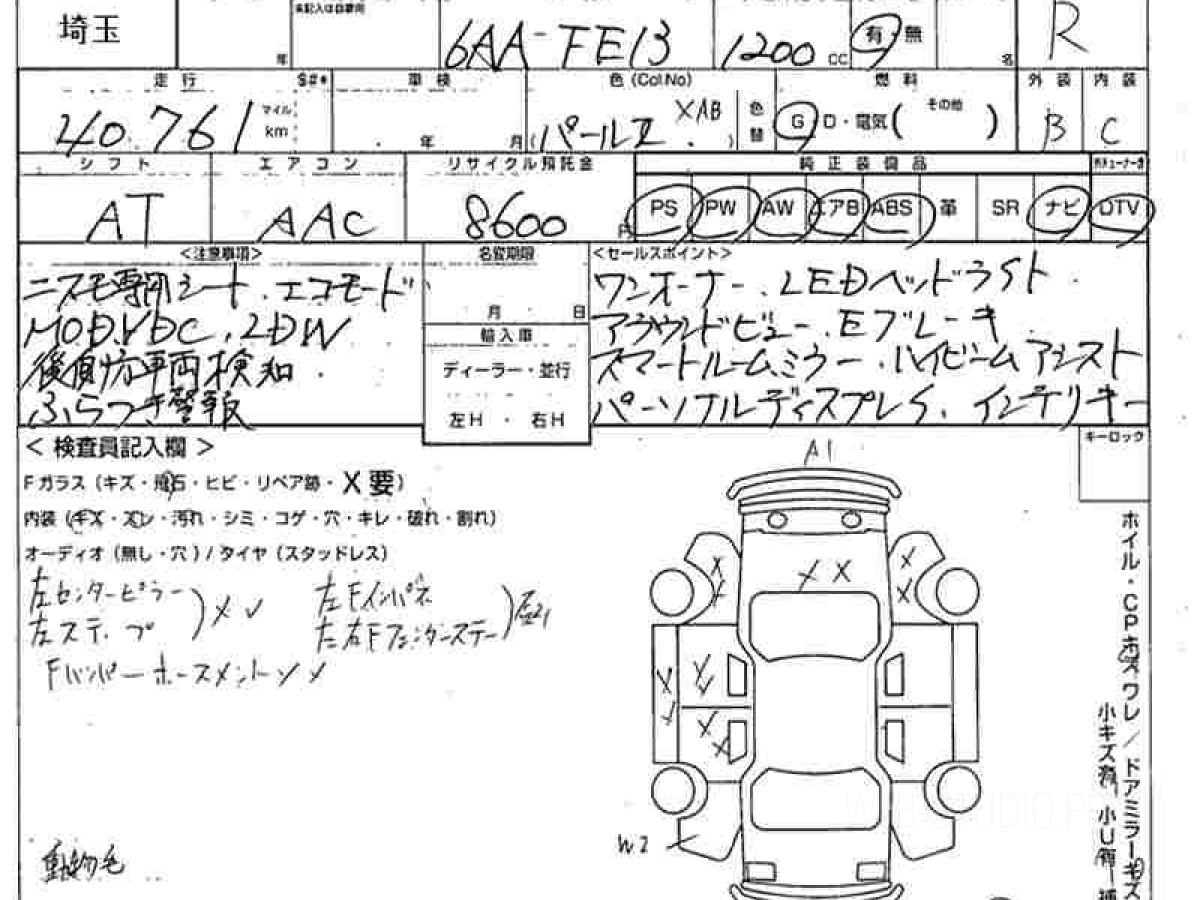 埼玉
未記入は自家用
6AA-FE13
1200 cc
有 無
年
名
R
走行
車検
色(Col No)
燃料
外装 内装
40.761
マイル
km
年 月
パール2
XAB
色替
G D・電気( その他 )
B C
シフト
エアコン
リサイクル預託金
純正装備品
AT
AAC
8600 円
PS PW AW エアB ABS 革 SR ナビ DTV
<注意事項>
名変期限
<セールスポイント>
ニスモ専用シート.エコモード
MOD.VDC.LDW
後側方車両検知.
ふらつき警報
月 日
輸入車
ディーラー・並行
左H ・ 右H
ワンオーナー.LEDヘッドライト.
アラウンドビュー.Eブレーキ
スマートルームミラー.ハイビームアシスト
パーソナルディスプレイ.インテリキー
<検査員記入欄>
キーロック
Fガラス(キズ・飛石・ヒビ・リペア跡・X要)
内装(キズ・スレ・汚れ・シミ・コゲ・穴・キレ・破れ・割れ)
オーディオ(無し・穴)/タイヤ(スタッドレス)
左センターピラー
左ステップ
X
左Fインパネ
左右Fフェンダーステー
動物毛
A1
X X
X
X
X
X
X
X
X
X
W2
ホイル・CPキズワレ/ドアミラーキズ
小キズ有 小U有 補